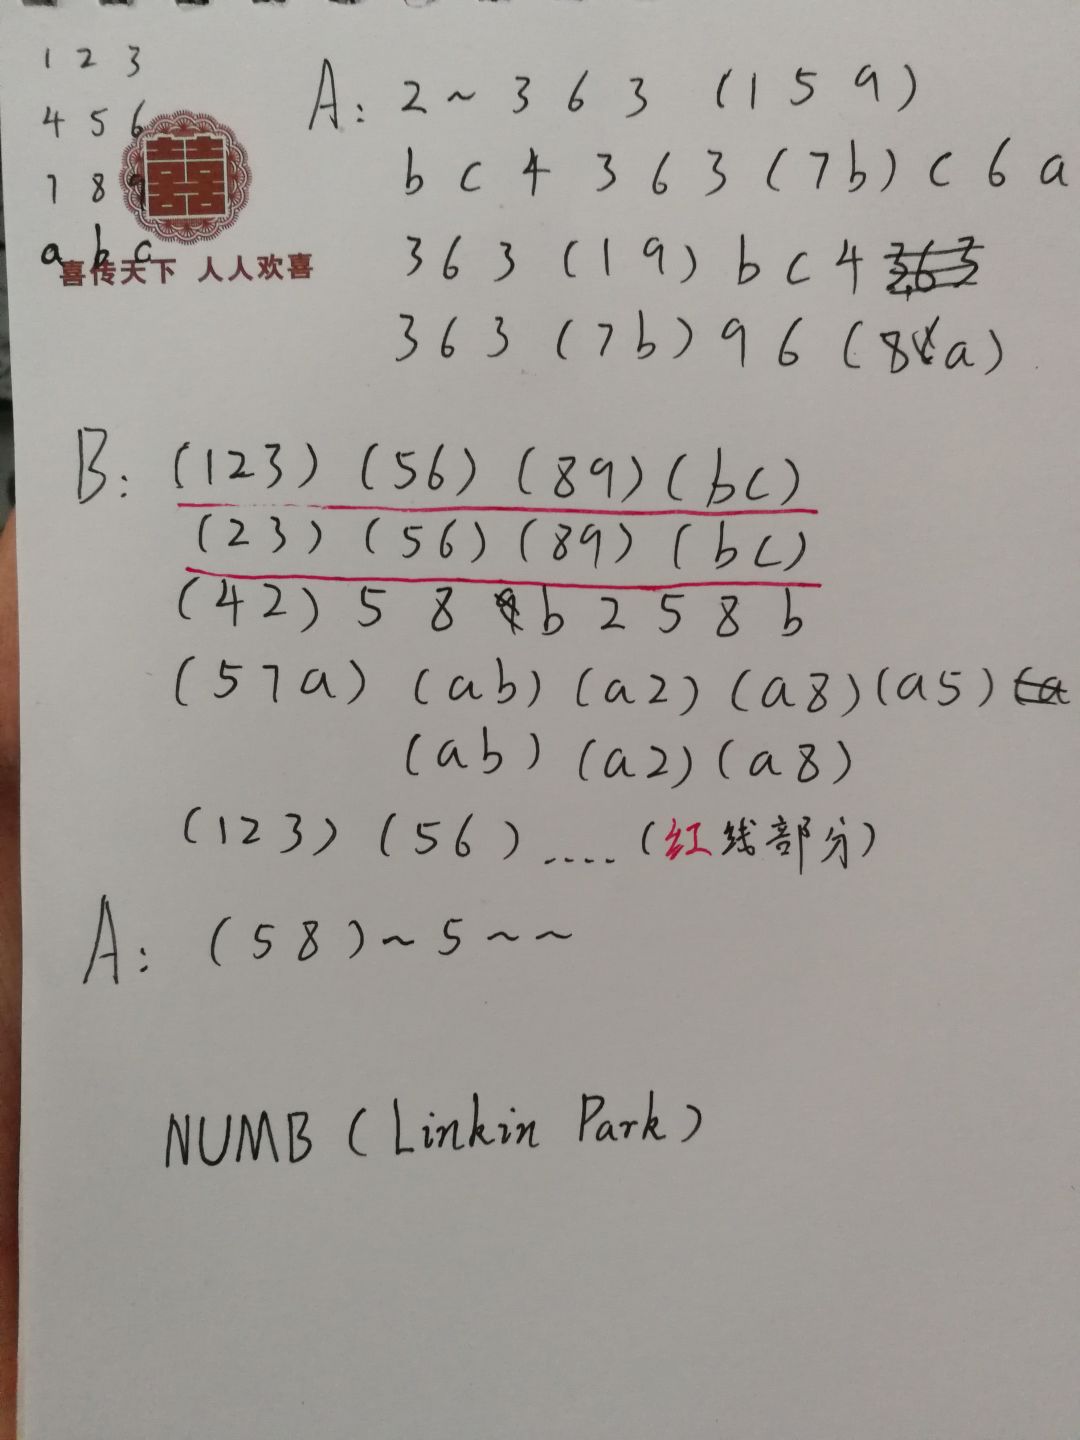 1 2 3
4 5 6
7 8 9
a b c
喜传天下 人人欢喜
A: 2 ~ 3 6 3 (1 5 9)
b c 4 3 6 3 (7b) c 6 a
3 6 3 (1 9) b c 4 363
3 6 3 (7b) 9 6 (8 a)
B: (123) (56) (89) (bc)
(23) (56) (89) (bc)
(42) 5 8 b 2 5 8 b
(57a) (ab) (a2) (a8) (a5) (a
(ab) (a2) (a8)
(123) (56) .... (红线部分)
A: (58) ~ 5 ~ ~
NUMB (Linkin Park)